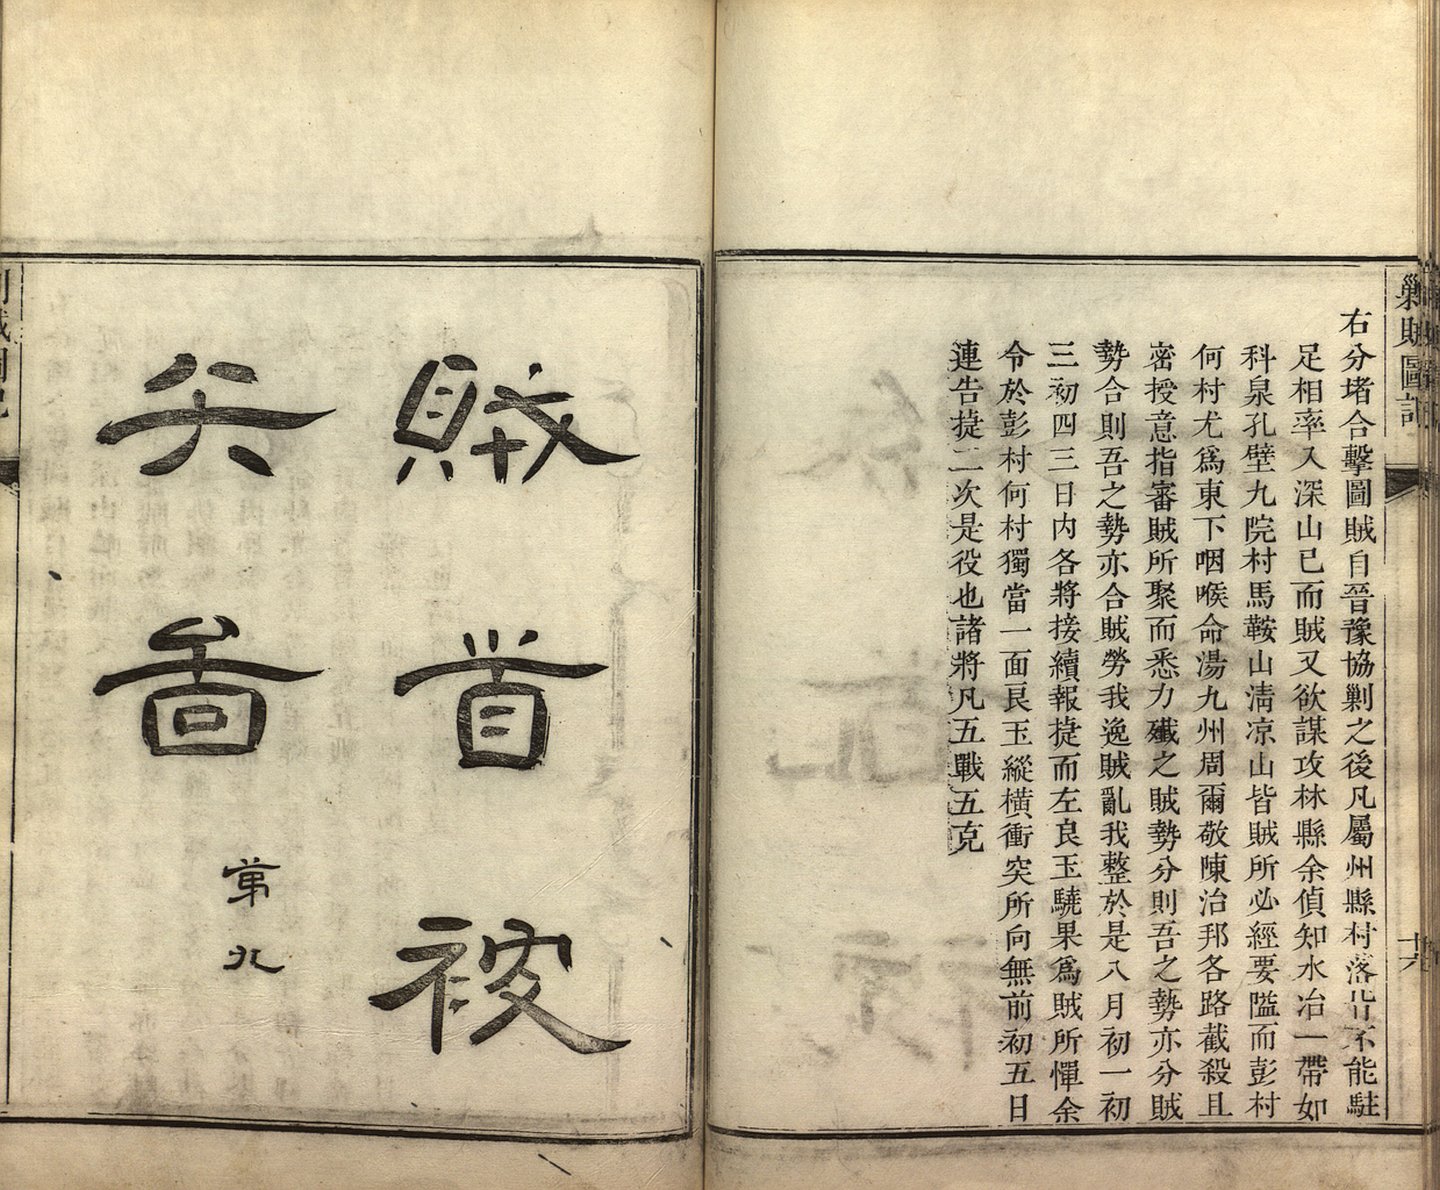 剿賊圖記
右分堵合擊圖賊自晉豫協剿之後凡屬州縣村落皆不能駐
足相率入深山已而賊又欲謀攻林縣余偵知水冶一帶如
科泉孔壁九院村馬鞍山清凉山皆賊所必經要隘而彭村
何村尤爲東下咽喉命湯九州周爾敬陳治邦各路截殺且
密授意指審賊所聚而悉力殲之賊勢分則吾之勢亦分賊
勢合則吾之勢亦合賊勞我逸賊亂我整於是八月初一初
三初四三日内各將接續報捷而左良玉驍果爲賊所憚余
令於彭村何村獨當一面良玉縱橫衝突所向無前初五日
連告捷二次是役也諸將凡五戰五克
十六
賊首被
矢圖
第九